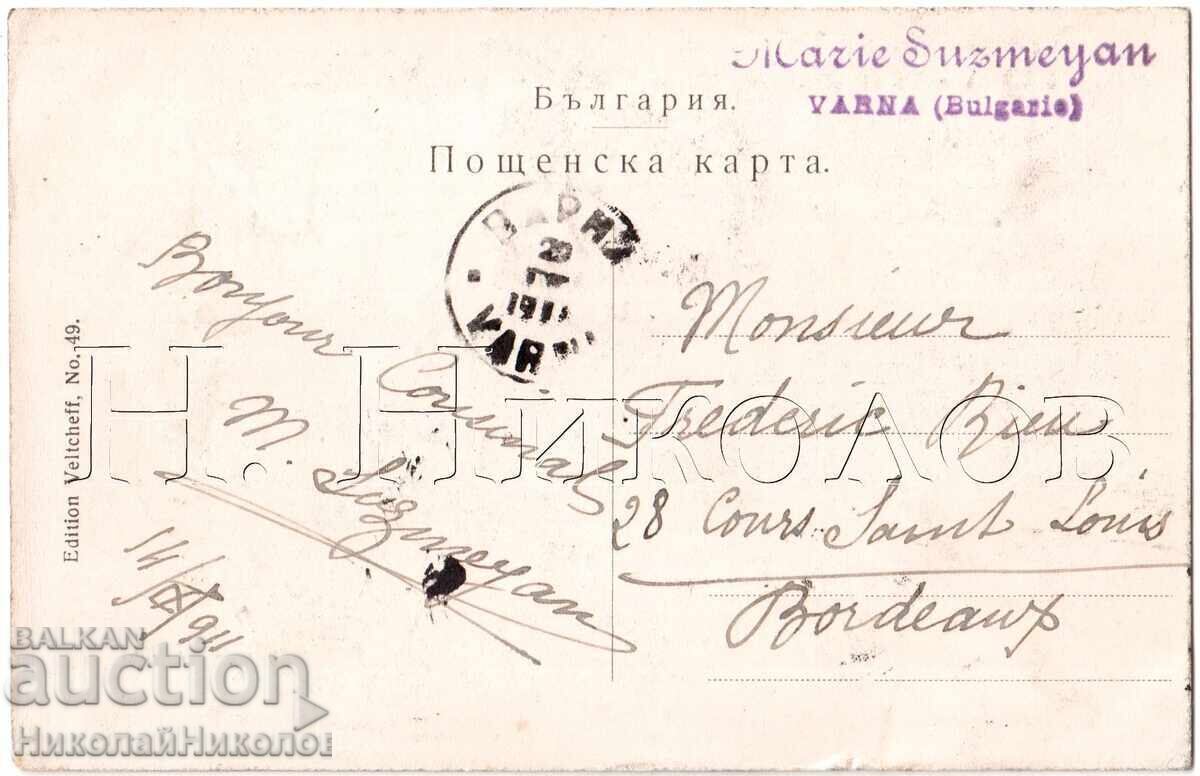 Marie Suzmeyan
VARNA (Bulgarie)
България.
Пощенска карта.
ВАРНА
1911
VARNA
Edition Veltcheff, No. 49.
Bonjour
M. Suzmeyan
Monsieur
Frederic Rieu
28 Cours Saint Louis
Bordeaux
Н. Николов
BALKAN
auction
НиколайНиколов